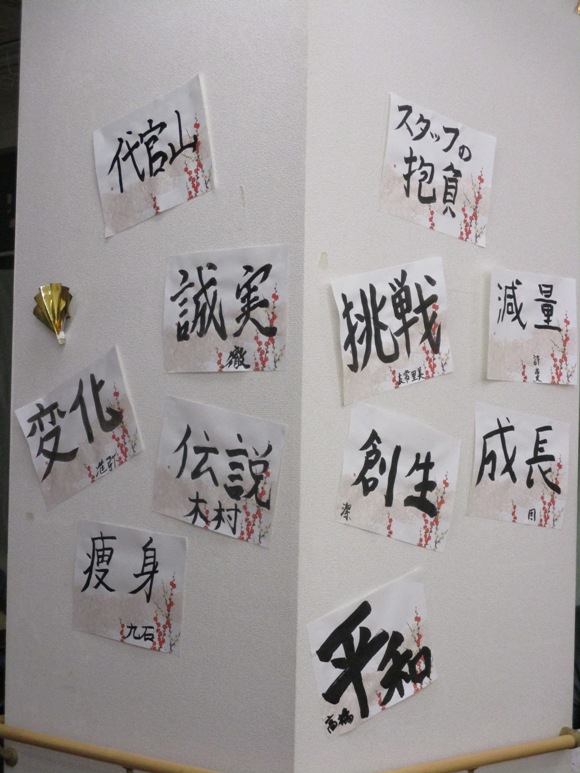 代官山
スタッフの
抱負
誠実
徹
挑戦
減量
変化
伝説
木村
創生
潔
成長
痩身
九石
平和
高橋